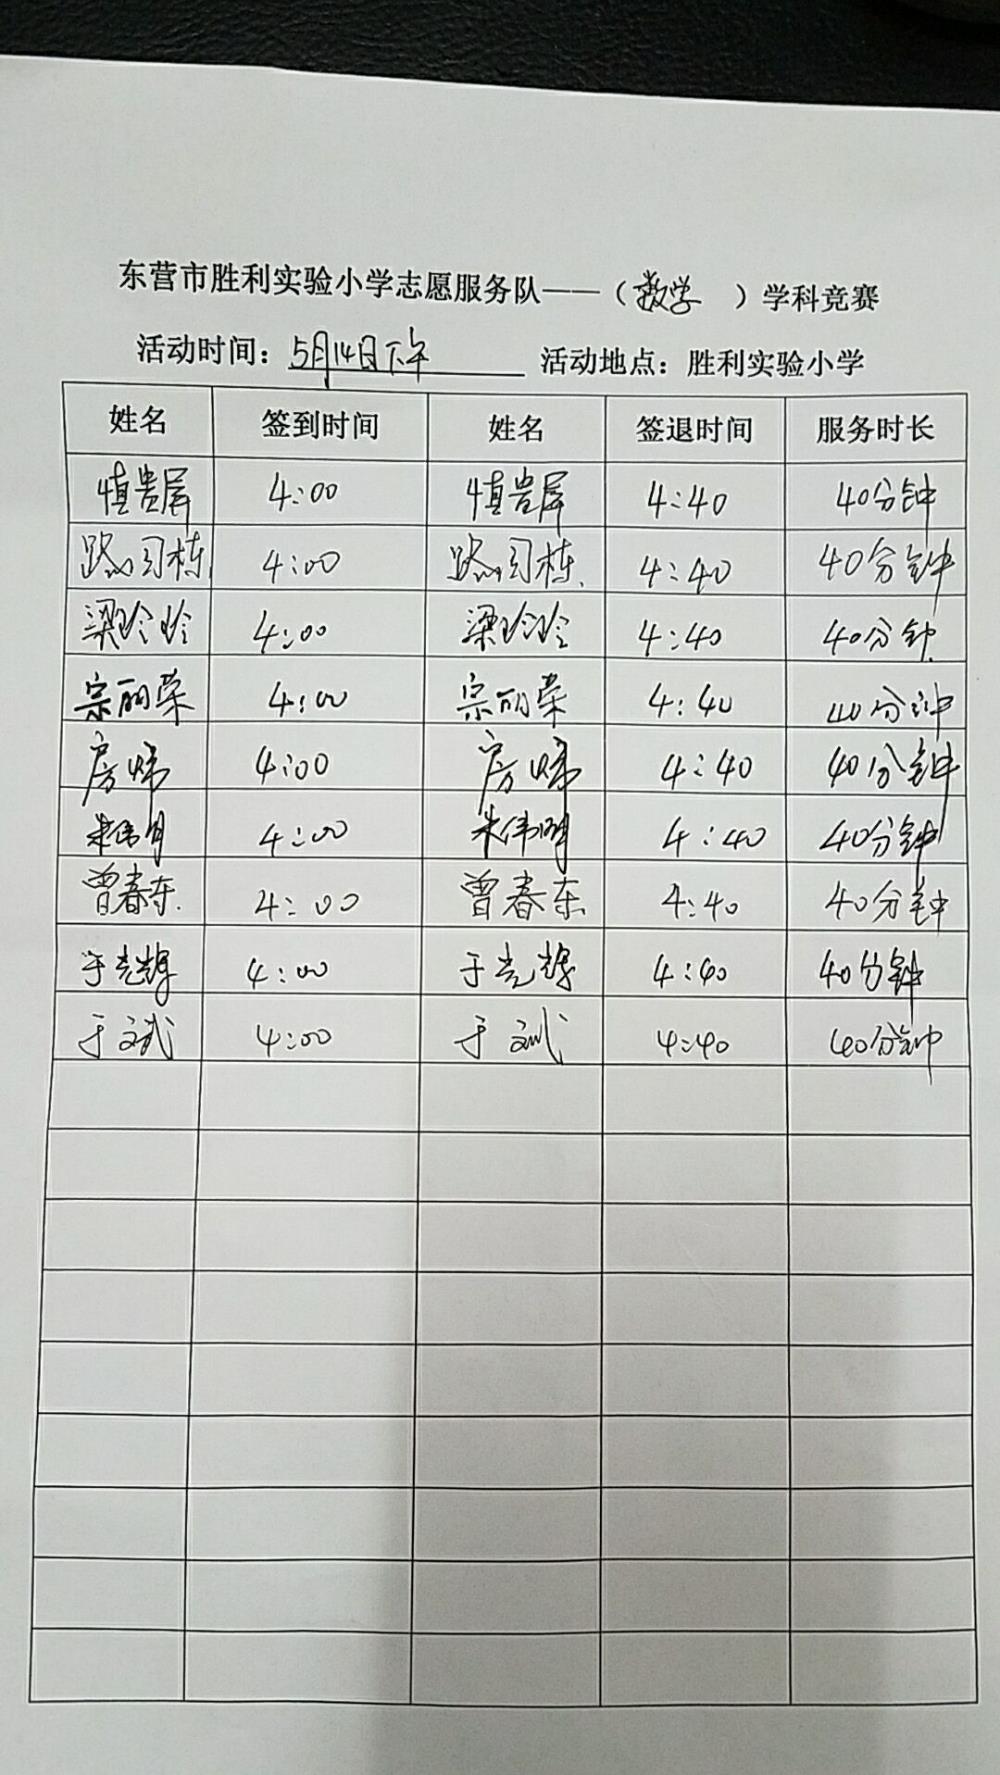 东营市胜利实验小学志愿服务队——（数学 ）学科竞赛
活动时间：5月14日下午 活动地点：胜利实验小学
姓名 签到时间 姓名 签退时间 服务时长
慎贵屏 4:00 慎贵屏 4:40 40分钟
路 栋 4:00 路 栋 4:40 40分钟
梁玲玲 4:00 梁玲玲 4:40 40分钟
宗丽荣 4:00 宗丽荣 4:40 40分钟
房 4:00 房 4:40 40分钟
朱伟明 4:00 朱伟明 4:40 40分钟
曾春东 4:00 曾春东 4:40 40分钟
于光辉 4:00 于光辉 4:40 40分钟
于文斌 4:00 于文斌 4:40 40分钟